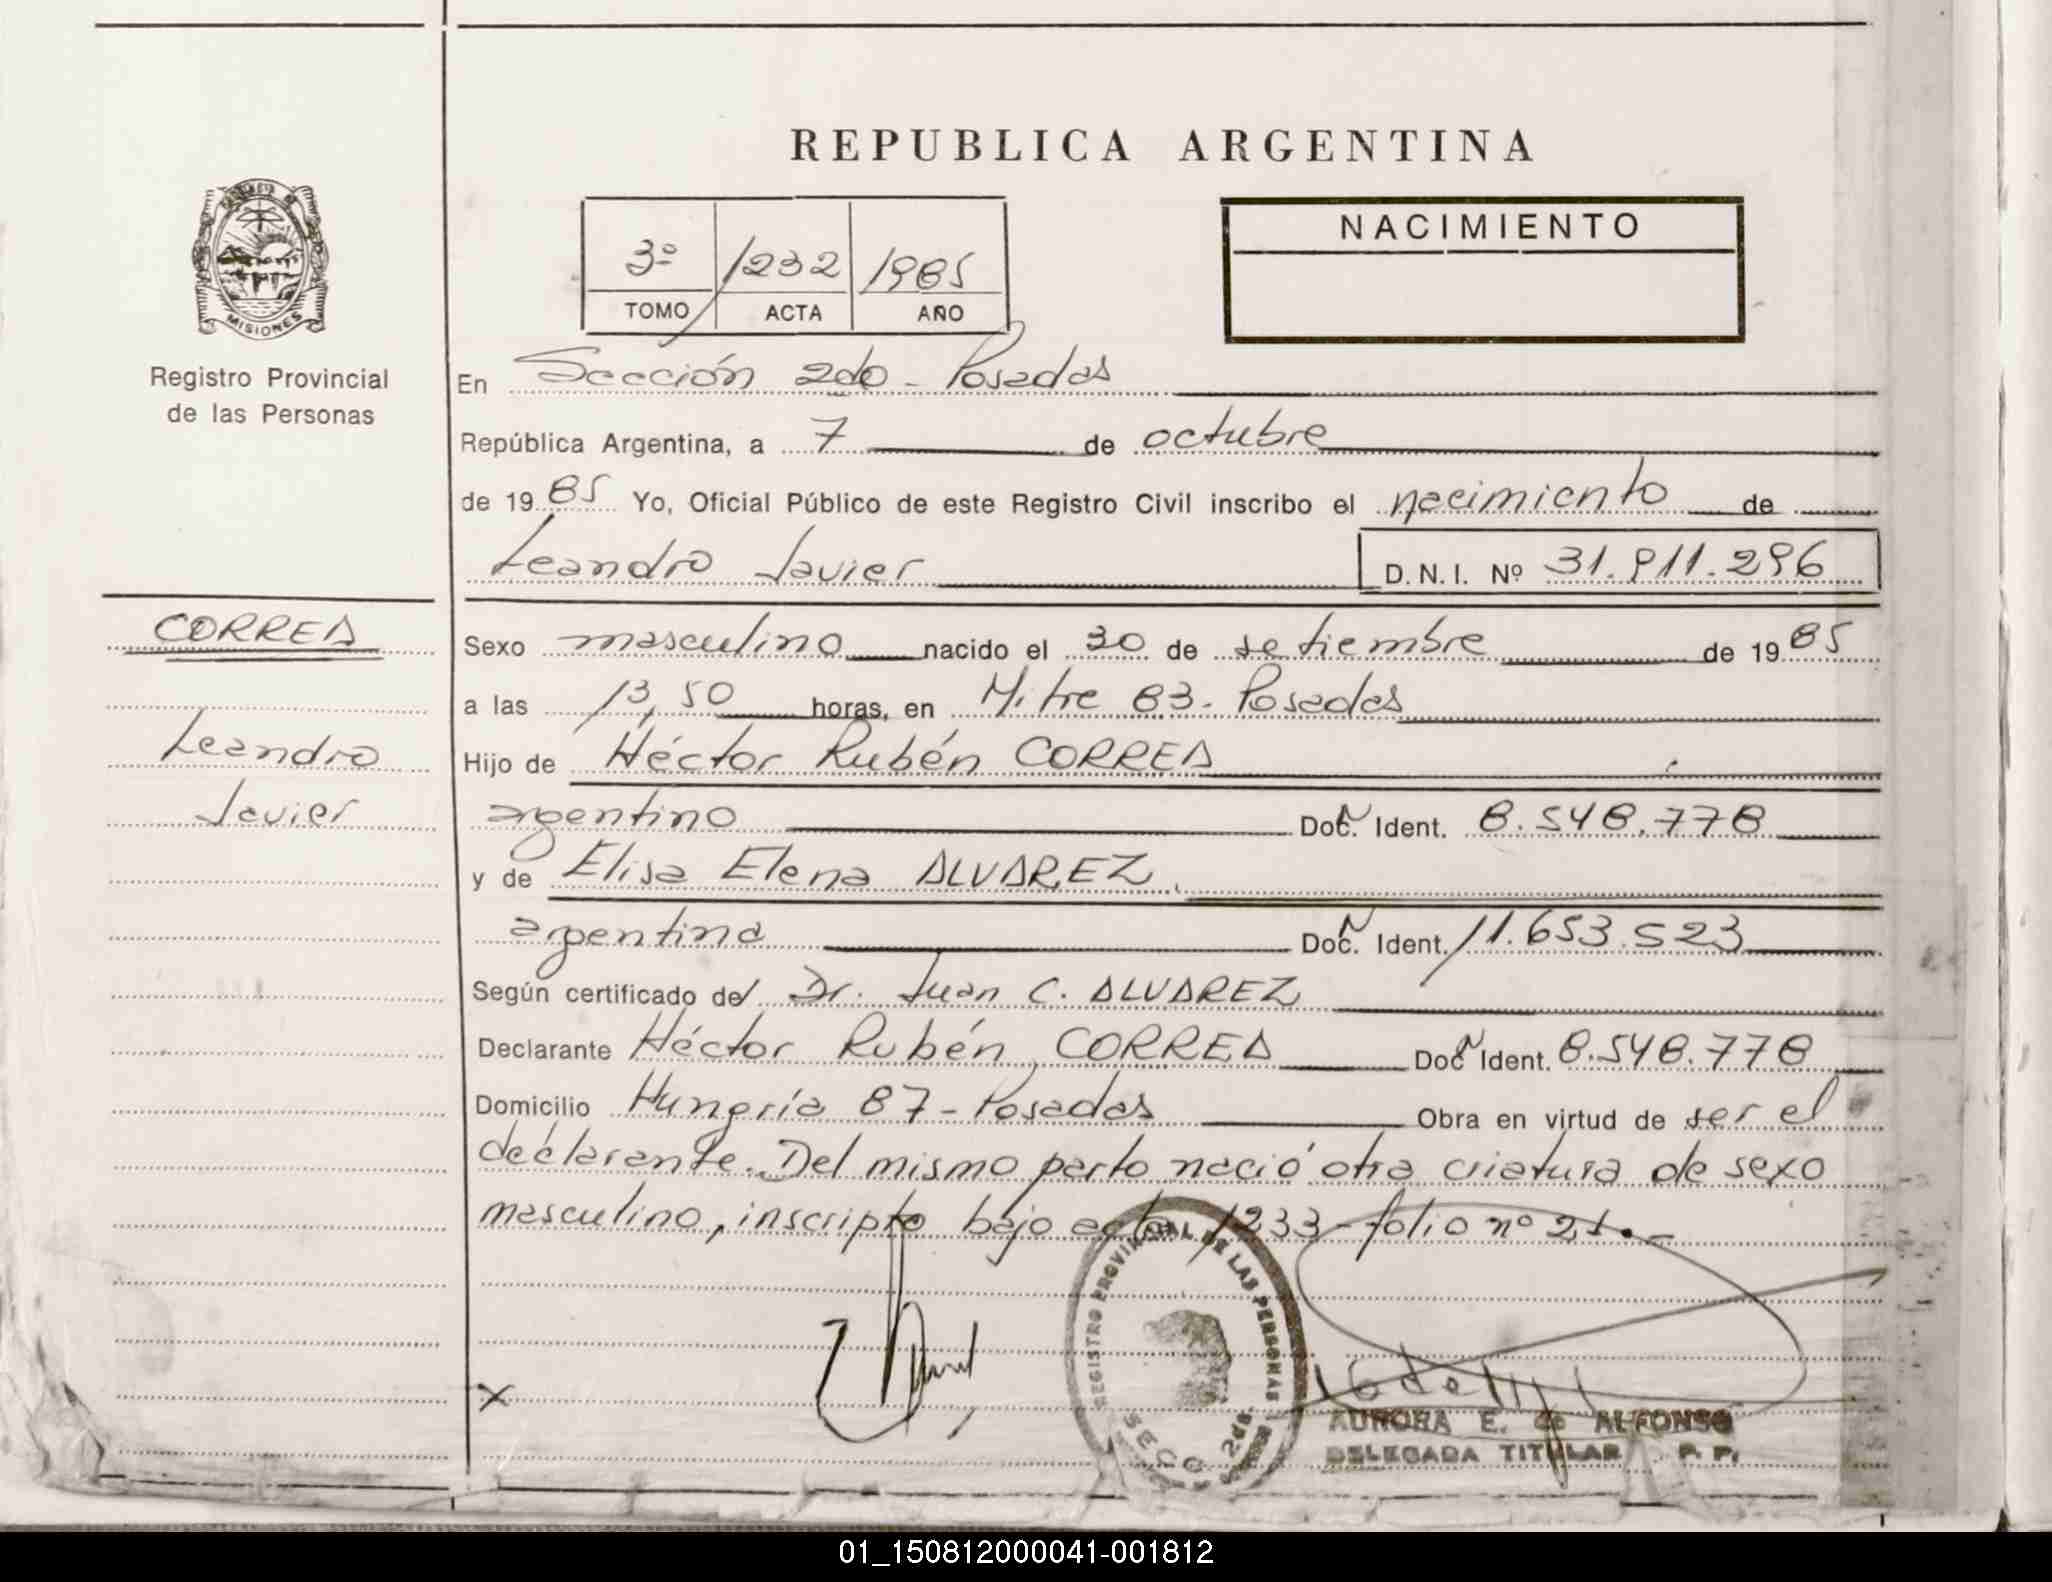 REPUBLICA ARGENTINA
MISIONES
Registro Provincial
de las Personas
3º 1232 1985
TOMO ACTA AÑO
NACIMIENTO
En Sección 2do - Posadas
República Argentina, a 7 de octubre
de 19 85 Yo, Oficial Público de este Registro Civil inscribo el nacimiento de
Leandro Javier D.N.I. Nº 31.911.296
CORREA
Leandro
Javier
Sexo masculino nacido el 30 de setiembre de 19 85
a las 13,50 horas, en Mitre 83 - Posadas
Hijo de Héctor Rubén CORREA
argentino Doc. Ident. 8.548.778
y de Elisa Elena ALVAREZ
argentina Doc. Ident. 11.653.523
Según certificado del Dr. Juan C. ALVAREZ
Declarante Héctor Rubén CORREA Doc Ident. 8.548.778
Domicilio Hungría 87 - Posadas Obra en virtud de ser el
declarante. Del mismo parto nació otra criatura de sexo
masculino, inscripto bajo acta 1233 - folio nº 21.-
X
REGISTRO PROVINCIAL DE LAS PERSONAS
SECC. 2da.
AURORA E. de ALFONSO
DELEGADA TITULAR R. P. P.
01_150812000041-001812